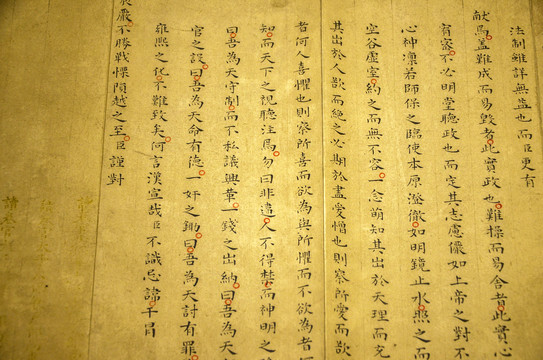 法制雖詳無益也而臣更有
献焉蓋難成而易毀者此實政也難操而易舍者此實心
宥密不必明堂聽政也而定其志慮儼如上帝之對不
心神凜若師保之臨使本原澄徹如明鏡止水照之而
空谷虛室約之而無不容一念萌知其出於天理而充
其出於人欲而絕之必期於盡愛憎也則察所愛而欲
者何人喜懼也則察所喜而欲為與所懼而不欲為者何
知而天下之視聽注焉勿曰非違人不得禁而神明之
曰吾為天守制而不私議興革一錢之出納曰吾為天
官之設曰吾為天命有德一奸之鋤曰吾為天討有罪
雍熙之化不難致矣何言漢宣哉臣不識忌諱干冒
宸嚴不勝戰慄隕越之至臣謹對